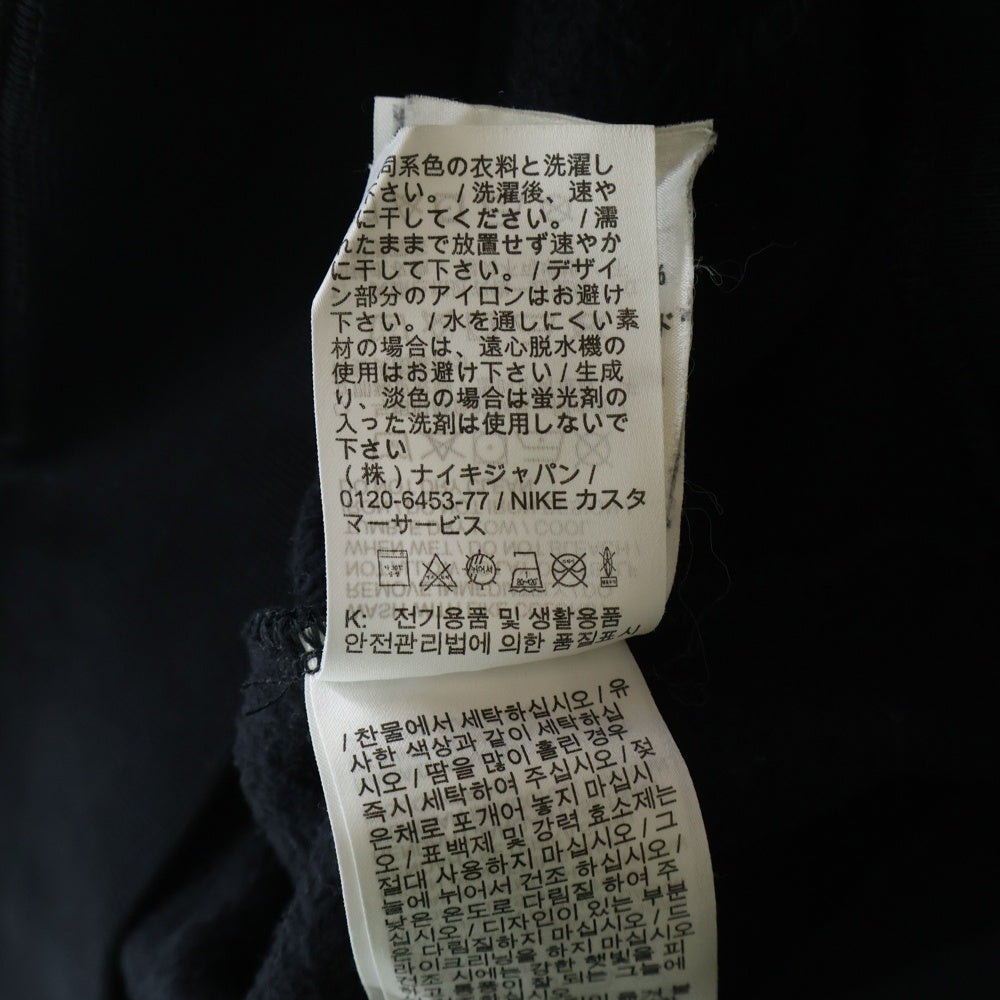 同系色の衣料と洗濯し
さい。 / 洗濯後、速や
に干してください。 / 濡
れたままで放置せず速やか
に干して下さい。 / デザイ
ン部分のアイロンはお避け
下さい。/ 水を通しにくい素
材の場合は、遠心脱水機の
使用はお避け下さい / 生成
り、淡色の場合は蛍光剤の
入った洗剤は使用しないで
下さい
(株) ナイキジャパン /
0120-6453-77 / NIKE カスタ
マーサービス
K: 전기용품 및 생활용품
안전관리법에 의한 품질표시
/ 찬물에서 세탁하십시오 / 유
사한 색상과 같이 세탁하십
시오 / 땀을 많이 흘린 경우
즉시 세탁하여 주십시오 / 젖
은채로 포개어 놓지 마십시
오 / 표백제 및 강력 효소제는
절대 사용하지 마십시오 / 그
늘에 뉘어서 건조 하십시오 /
낮은 온도로 다림질 하여 주
십시오 / 디자인이 있는 부분
은 다림질하지 마십시오 / 드
라이크리닝을 하지 마십시오